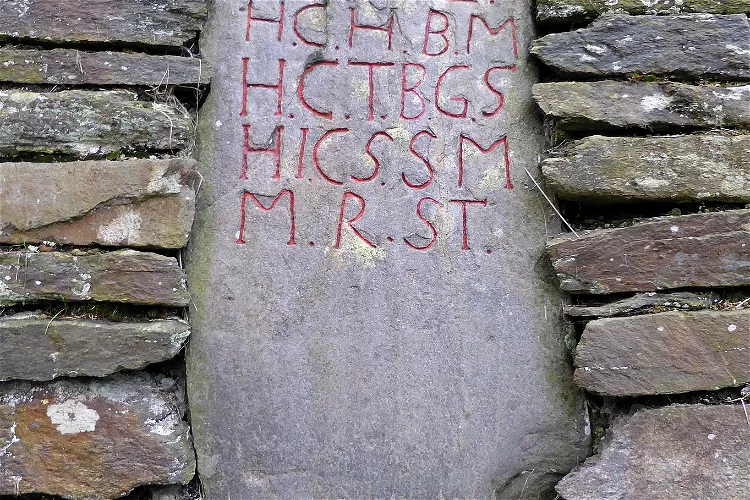 H.C.H.B.M
H.C.T.BG.S
H.I.C.S.S.M
M.R.ST.